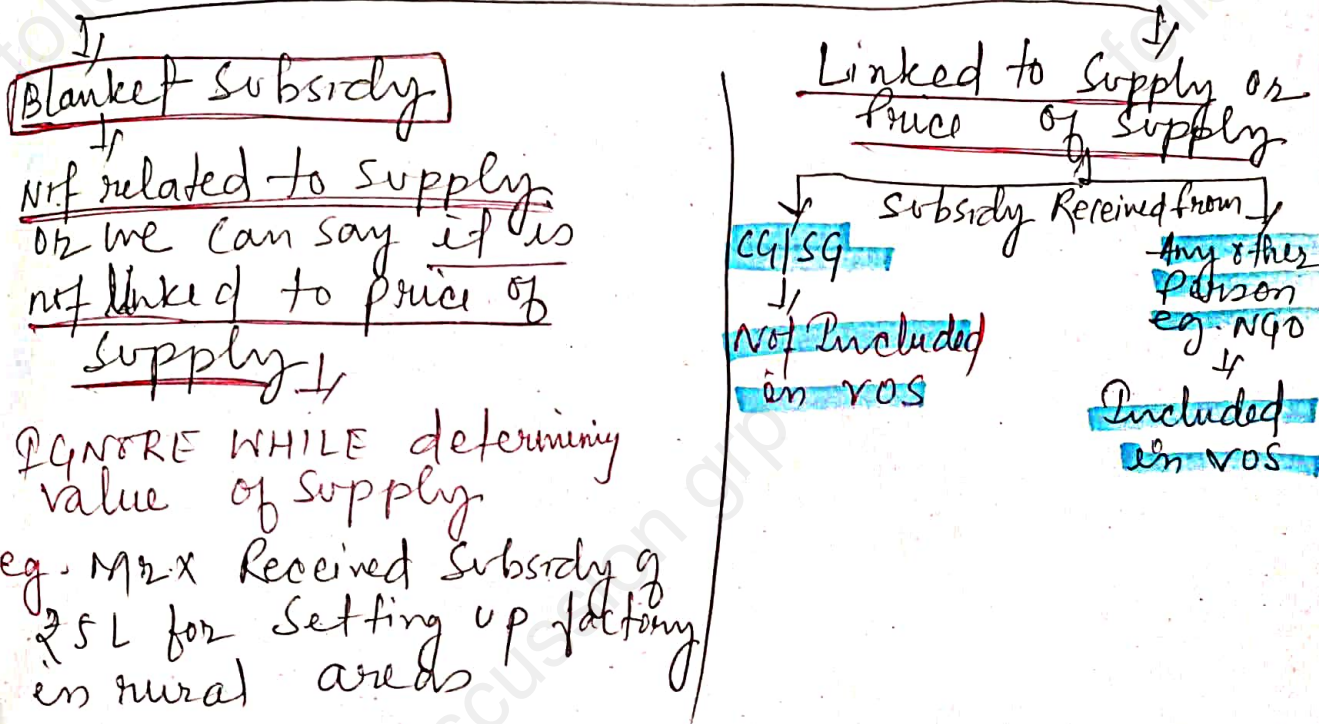 Blanket Subsidy
Not related to supply
or we can say it is
not linked to price of
supply
IGNORE WHILE determining
value of supply
eg. Mr.X Received Subsidy of
₹5L for setting up factory
in rural areas
Linked to supply or
Price of supply
Subsidy Received from
CG/SG
Not Included
in VOS
Any other
Person
eg. NGO
Included
in VOS